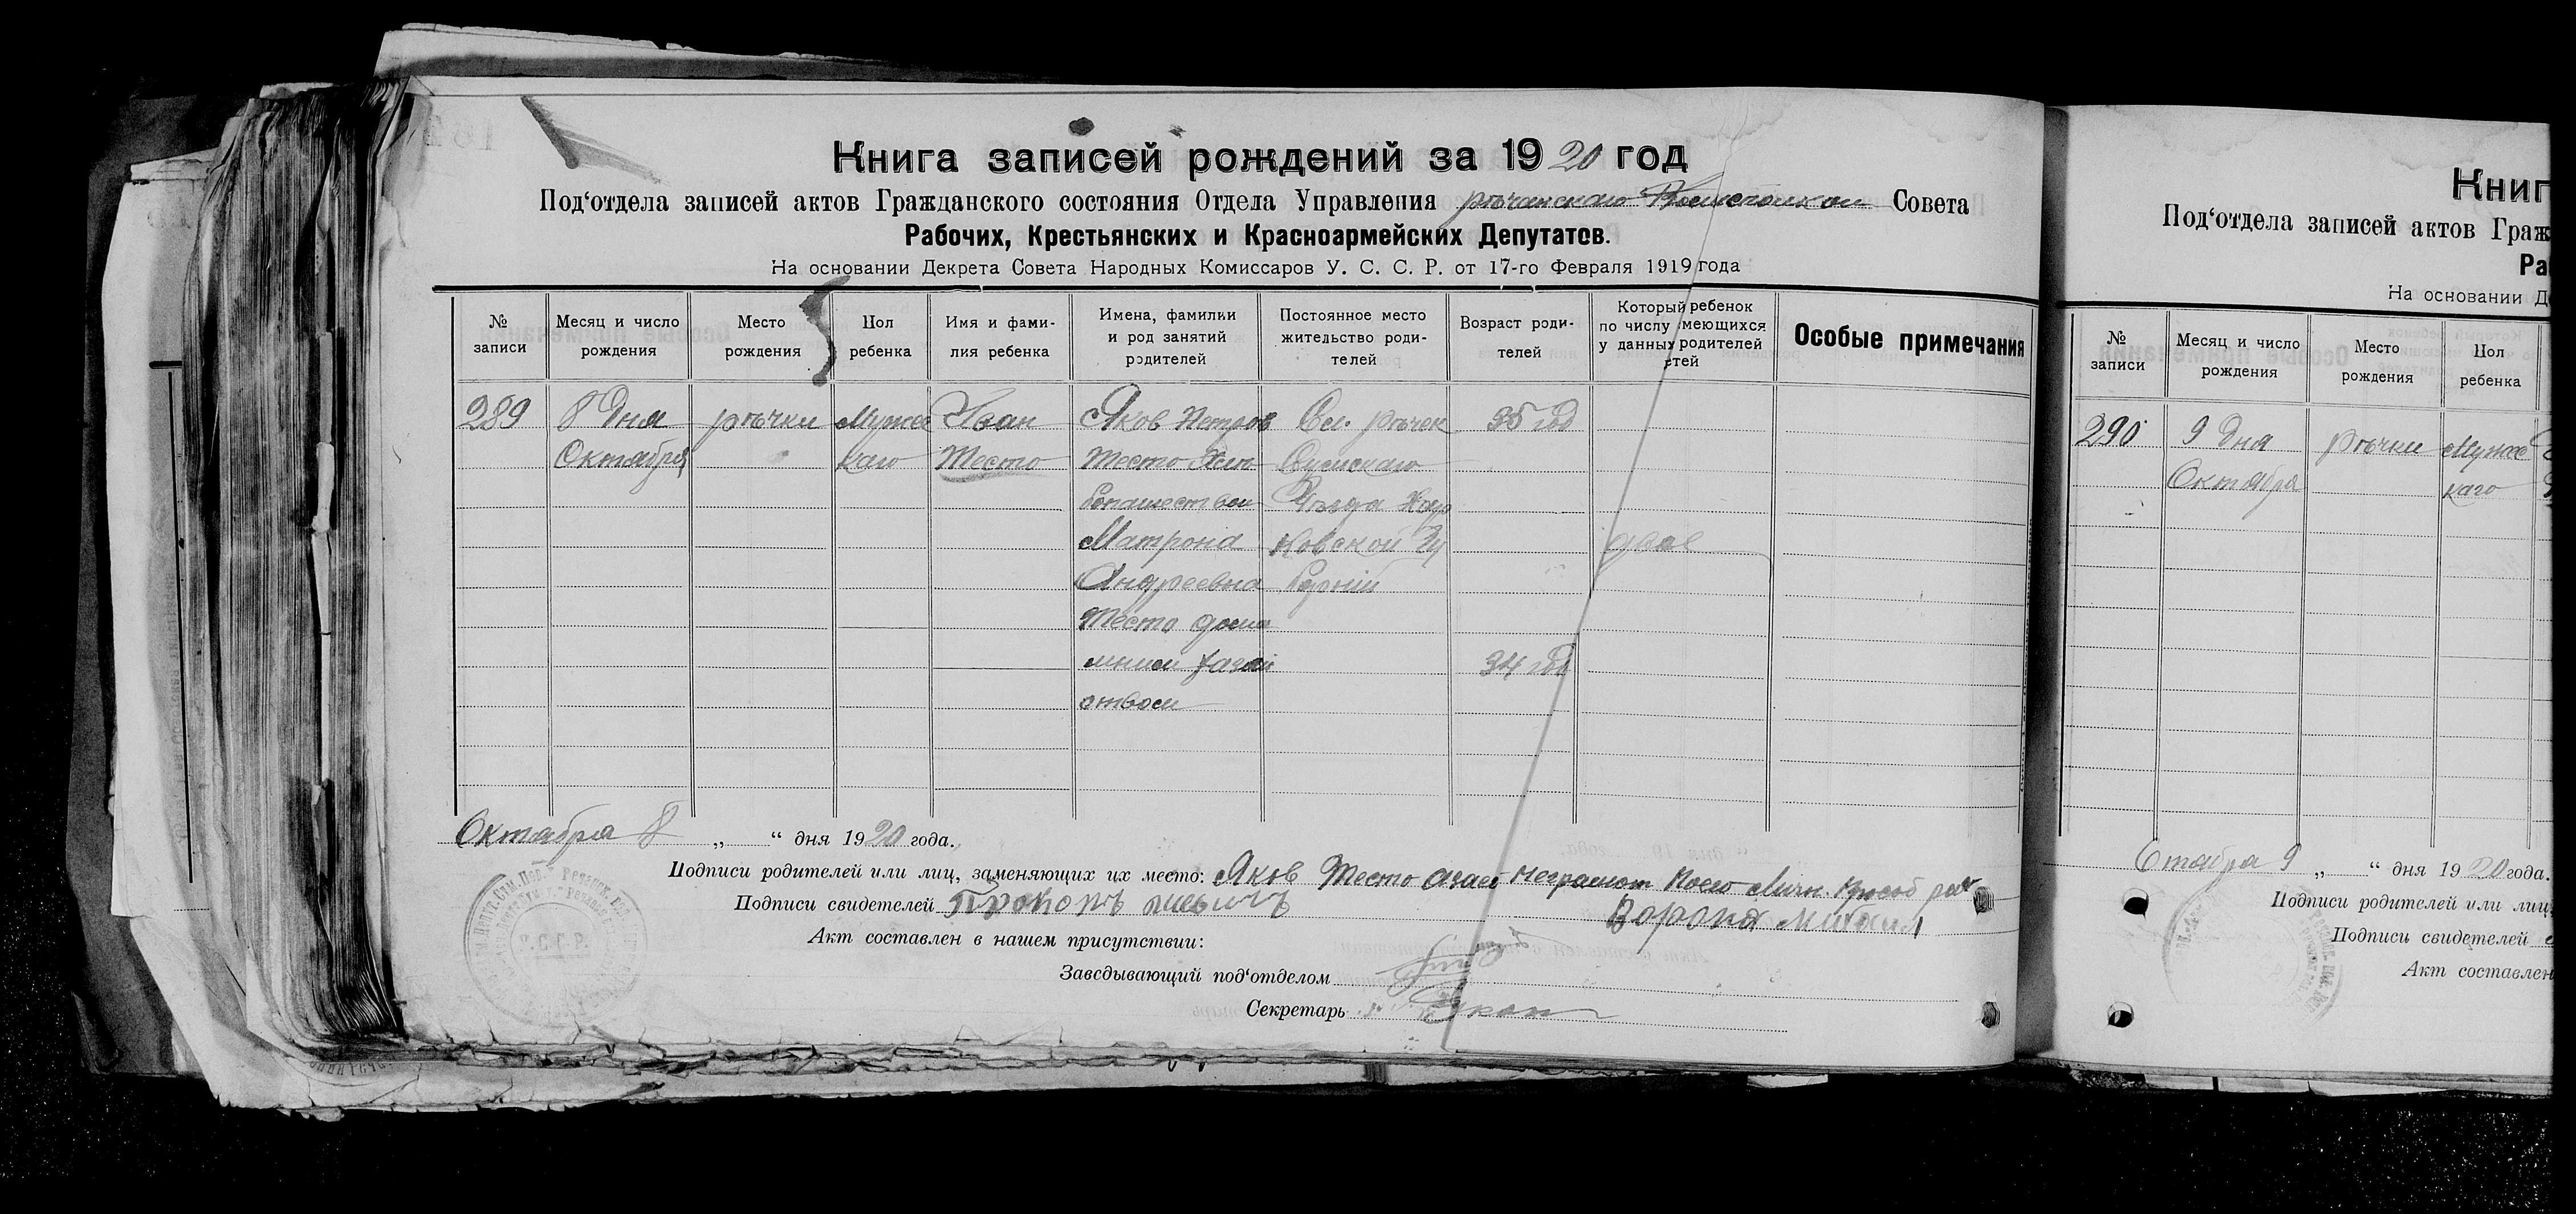 Книга записей рождений за 1920 год
Под‘отдела записей актов Гражданского состояния Отдела Управления Совета
Рабочих, Крестьянских и Красноармейских Депутатов.
На основании Декрета Совета Народных Комиссаров У. С. С. Р. от 17-го Февраля 1919 года
№ записи
Месяц и число рождения
Место рождения
Пол ребенка
Имя и фами-
лия ребенка
Имена, фамилии
и род занятий
родителей
Постоянное место
жительство роди-
телей
Возраст роди-
телей
Который ребенок
по числу имеющихся
у данных родителей
етей
Особые примечания
289 8 дня речки Мужс Иван Яков Петров Сел. речек 35 год
Октября каго Место Место Хлѣ Сумскаго
бопашеством Уезда Хар
Матрона ковской Гу двое
Андреевна берніи
Место дома
шним хазяй 34 год
ством
Октября 8 „ “ дня 1920 года.
Подписи родителей или лиц, заменяющих их место: Яков Место неграмот
Подписи свидетелей Прокопъ
Ворона
Акт составлен в нашем присутствии:
Заведывающий под‘отделом
Секретарь
Книг
Под‘отдела записей актов Граж
Ра
На основании Д
№ записи
Месяц и число рождения
Место рождения
Пол ребенка
290 9 дня речки Мужс
Октября каго
9 „ “ дня 1920 года.
Подписи родителей или лиц,
Подписи свидетелей
Акт составлен